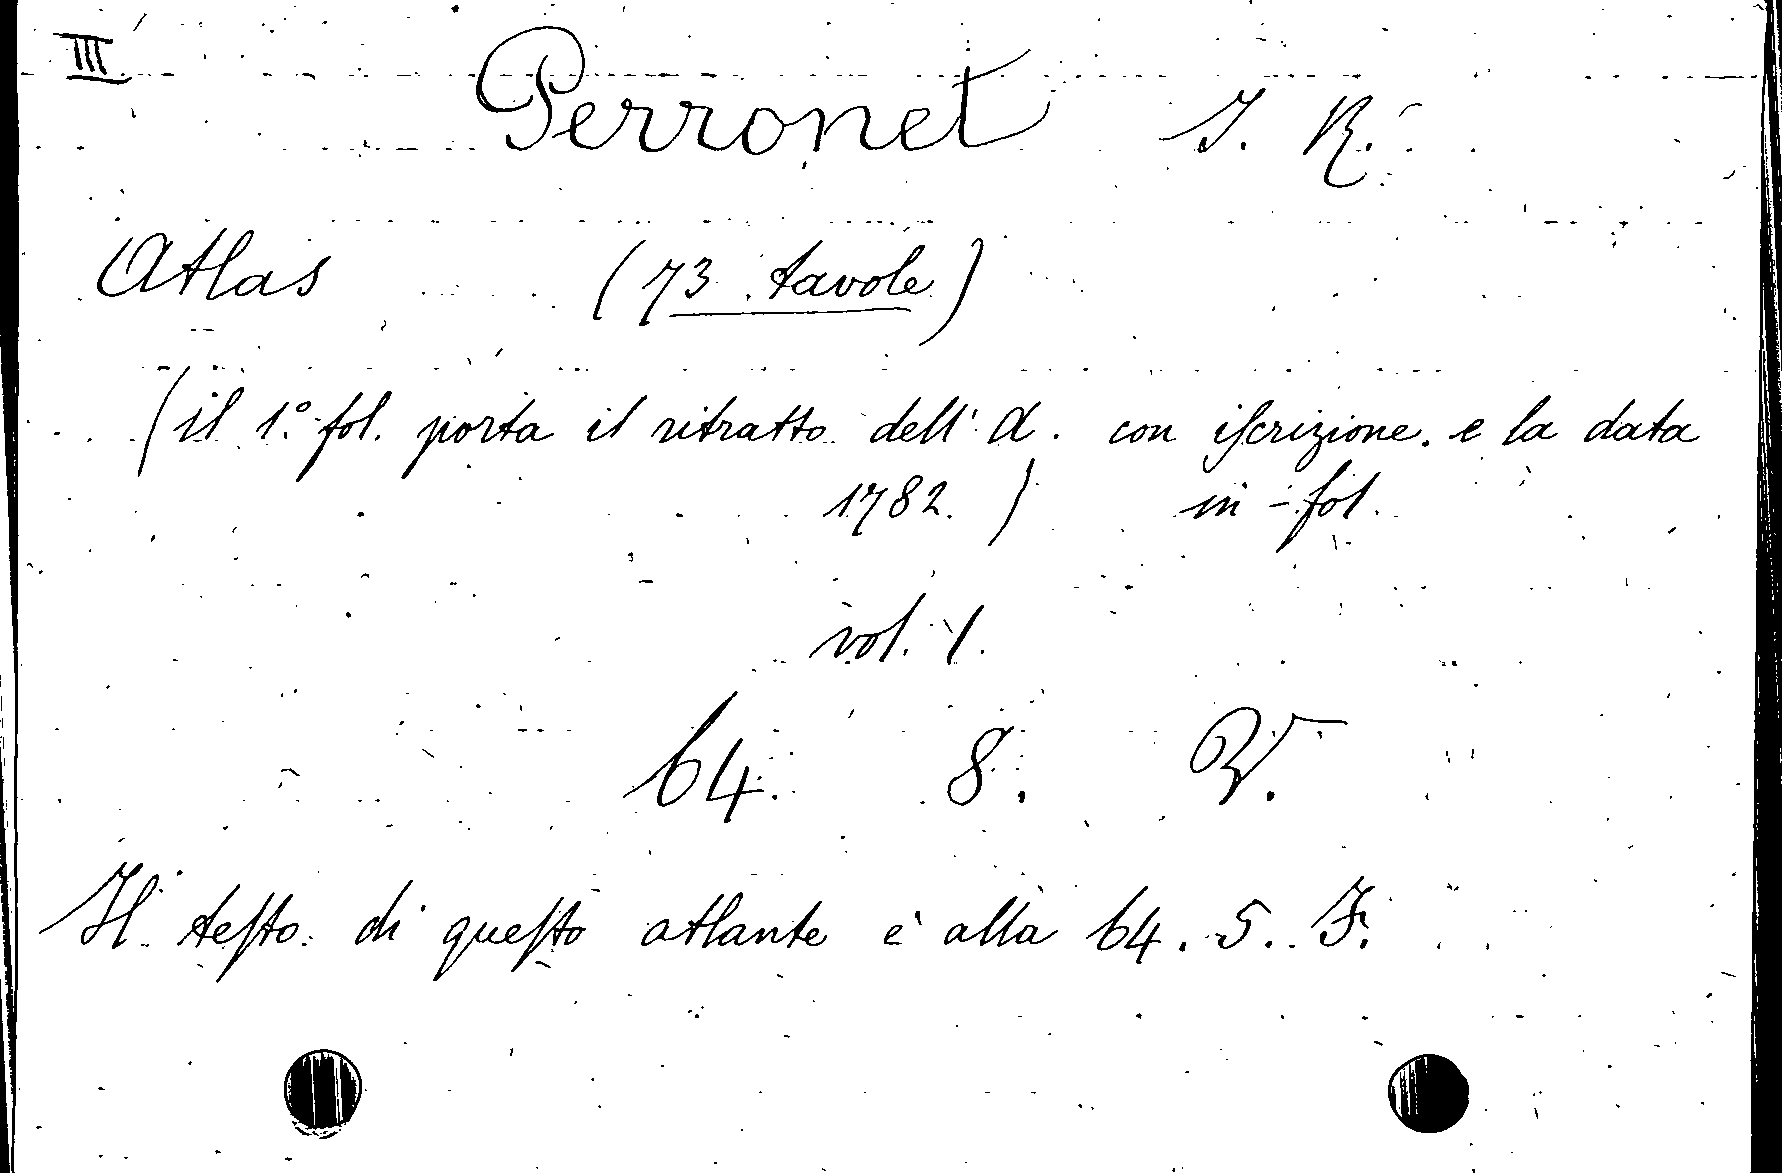 III
Perronet J. R.
Atlas (73 tavole)
(il 1º fol. porta il ritratto dell' A. con iſcrizione e la data
1782.) in-fol.
vol. 1.
64. 8.
Il teſto di queſto atlante è alla 64. 5.